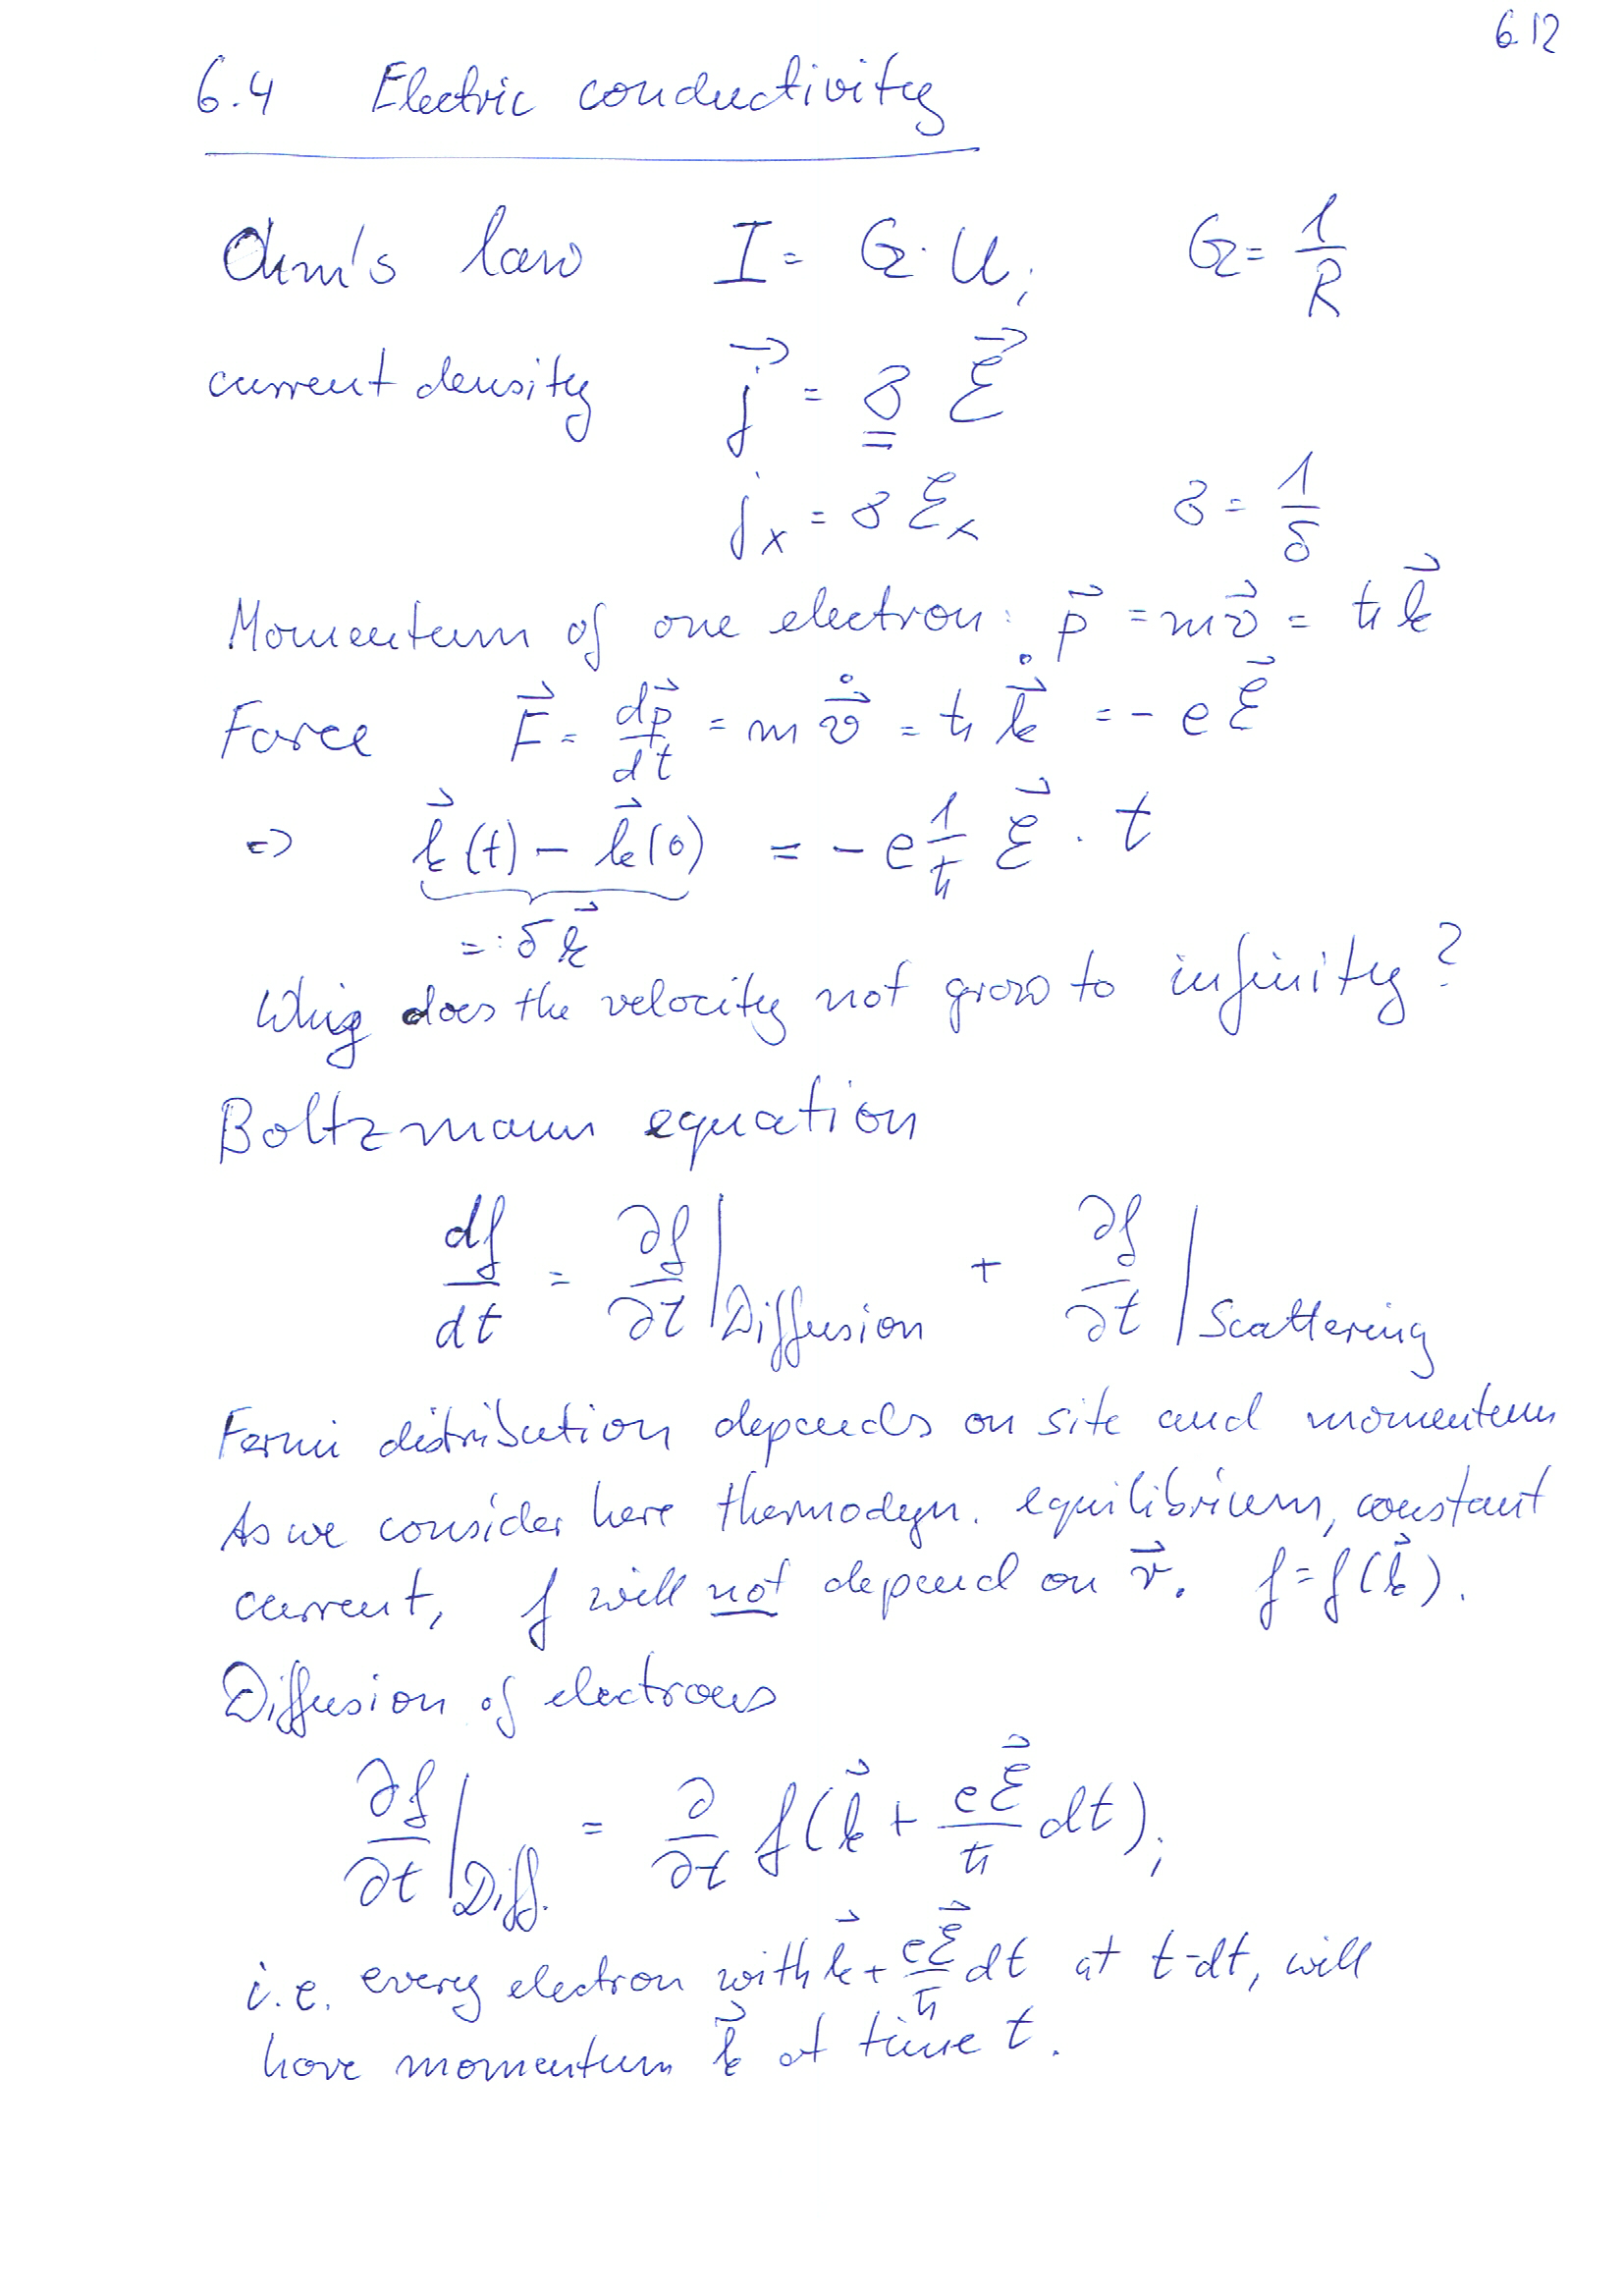 6.12
6.4 Electric conductivity
Ohm's law I = G · U; G = 1/R
current density j⃗ = σ ℰ⃗
jₓ = σ ℰₓ σ = 1/ϱ
Momentum of one electron: p⃗ = m v⃗ = ħ k⃗
Force F⃗ = dp⃗/dt = m v⃗̇ = ħ k⃗̇ = - e ℰ⃗
=> k⃗(t) - k⃗(0) = - e 1/ħ ℰ⃗ · t
=: δk⃗
Why does the velocity not grow to infinity?
Boltzmann equation
df/dt = ∂f/∂t |Diffusion + ∂f/∂t |Scattering
Fermi distribution depends on site and momentum
As we consider here thermodyn. equilibrium, constant
current, f will not depend on r⃗. f = f(k⃗).
Diffusion of electrons
∂f/∂t |Diff. = ∂/∂t f(k⃗ + eℰ⃗/ħ dt);
i.e. every electron with k⃗ + eℰ⃗/ħ dt at t-dt, will
have momentum k⃗ at time t.